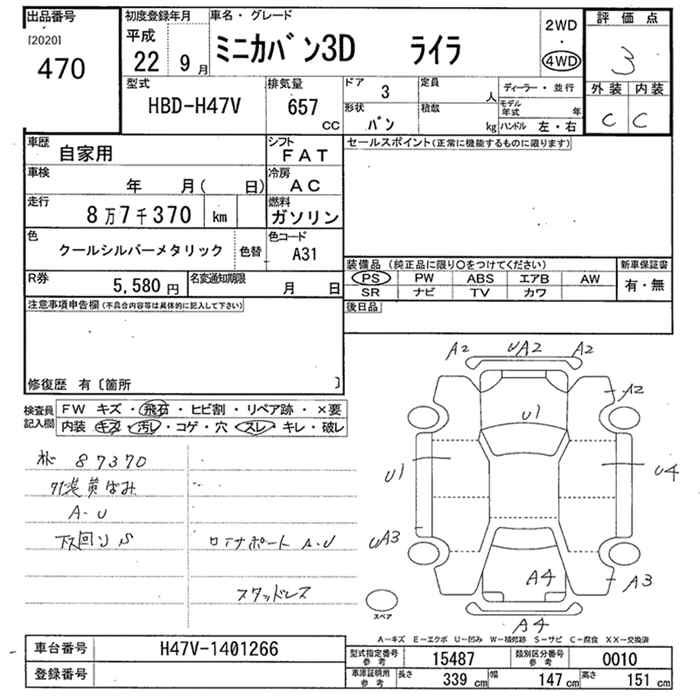 出品番号
[2020]
470
初度登録年月
平成
22 9 月
車名・グレード
ミニカバン3D ライラ
2WD
・
4WD
評価点
3
外装 内装
C C
型式
HBD-H47V
排気量
657
CC
ドア
3
定員
人
形状
バン
積数
kg
ディーラー・並行
モデル年式 年
ハンドル 左・右
車歴
自家用
シフト
FAT
車検
年 月( 日)
冷房
AC
走行
8万7千370 km
燃料
ガソリン
色
クールシルバーメタリック
色替
色コード
A31
R券
5,580 円
名変通知期限
月 日
セールスポイント(正常に機能するものに限ります)
装備品 (純正品に限り○をつけてください)
新車保証書
PS PW ABS エアB AW
SR ナビ TV カワ
有・無
後日品
注意事項申告欄(不具合内容等は具体的に記入して下さい)
修復歴 有〔箇所 〕
検査員記入欄
FW キズ・飛石・ヒビ割・リペア跡・×要
内装 キズ・汚レ・コゲ・穴・スレ・キレ・破レ
87370
A-U
下回り S
A-U
スタッドレス
A2 UA2 A2
A2
U1
U1
U4
UA3
A4
A3
A4
スペア
A-キズ E-エクボ U-凹み W-補修跡 S-サビ C-腐食 XX-交換済
車台番号
H47V-1401266
登録番号
型式指定番号
参考
15487
類別区分番号
参考
0010
車庫証明用
参考
長さ
339 cm
幅
147 cm
高さ
151 cm